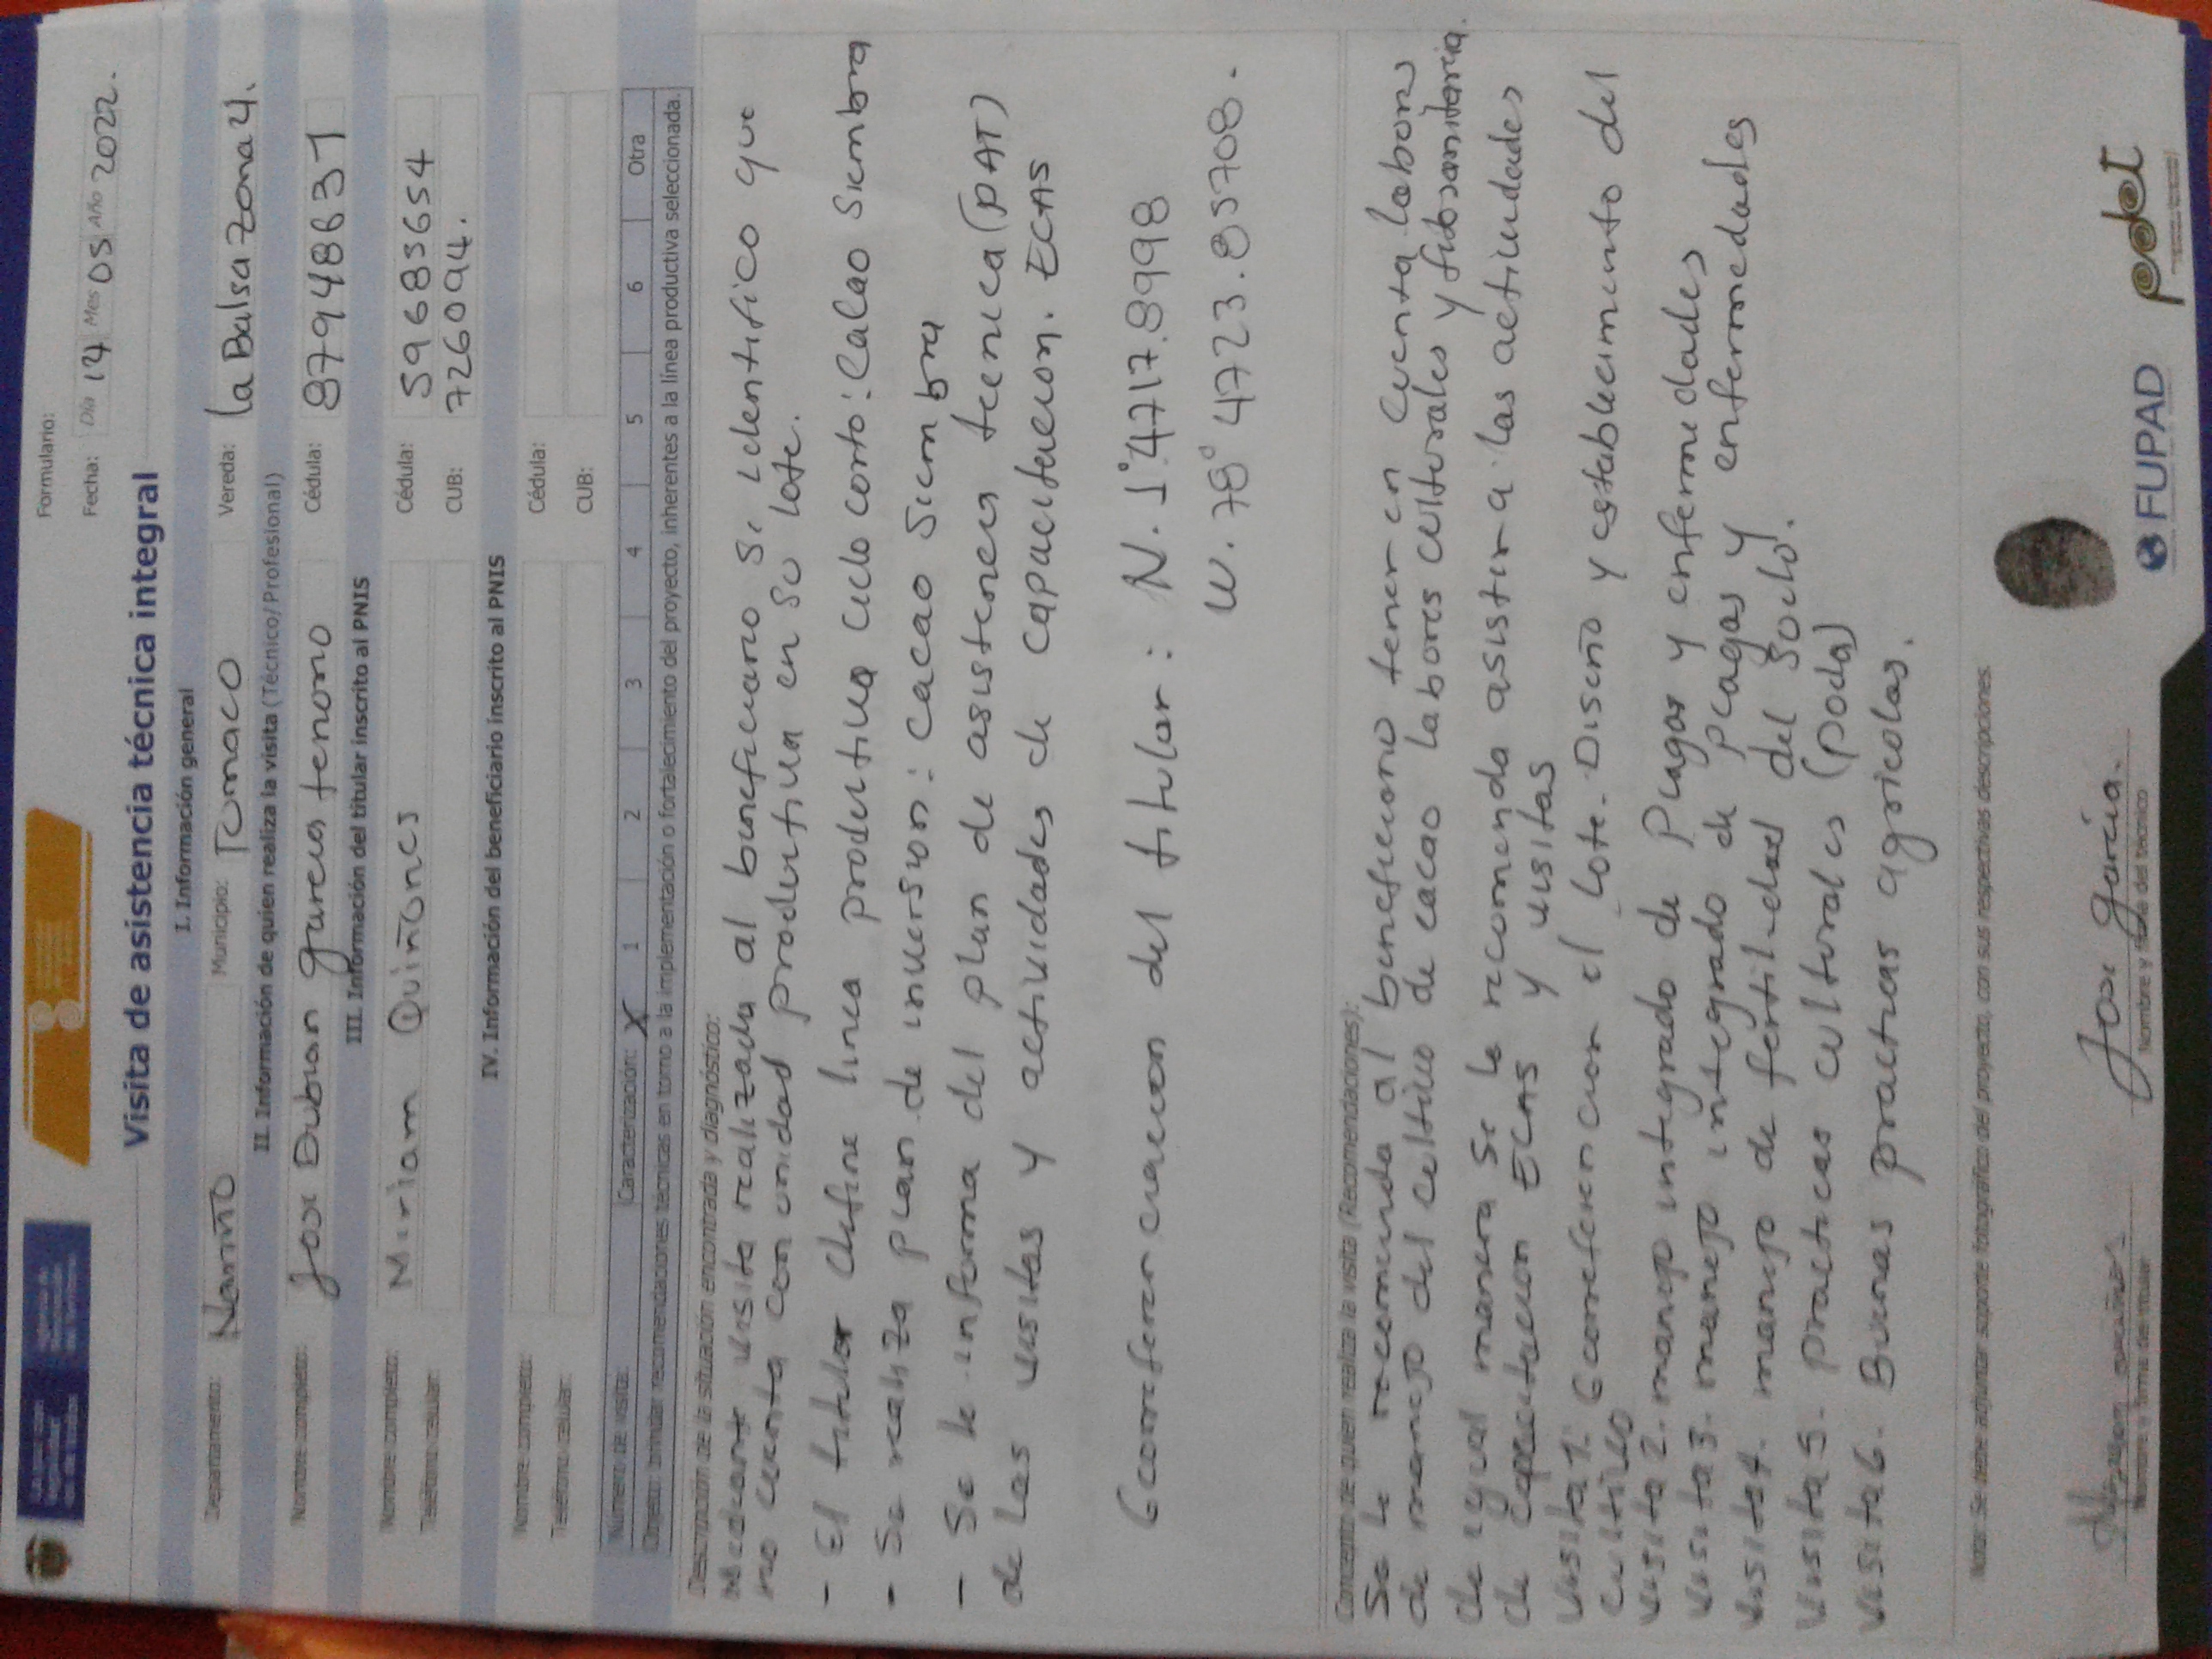 Formulario:
Fecha: Día 14 Mes 05 Año 2022.
Visita de asistencia técnica integral
I. Información general
Departamento: Nariño Municipio: Tumaco Vereda: la Balsa zona 4.
II. Información de quien realiza la visita (Técnico/Profesional)
Nombre completo: Jose Duban garces tenorio Cédula: 87948631
III. Información del titular inscrito al PNIS
Nombre completo: Miriam Quiñones Cédula: 59683654
Teléfono/celular: CUB: 726094.
IV. Información del beneficiario inscrito al PNIS
Nombre completo: Cédula:
Teléfono/celular: CUB:
Número de visita: Caracterización: X 1 2 3 4 5 6 Otra
Objeto: brindar recomendaciones técnicas en torno a la implementación o fortalecimiento del proyecto, inherentes a la línea productiva seleccionada.
Descripción de la situación encontrada y diagnóstico:
Mediante visita realizada al beneficiario se identifico que
no cuenta con unidad productiva en su lote.
- El titular define linea productiva ciclo corto: Cacao Siembra
- Se realiza plan de inversion: Cacao Siembra
- Se le informa del plan de asistencia tecnica (PAT)
de las visitas y actividades de capacitacion. ECAS
Georeferenciacion del titular: N. 1° 4717.8998
W. 78° 4723.85708.
Concepto de quien realiza la visita (Recomendaciones):
Se le recomienda al beneficiario tener en cuenta labores
de manejo del cultivo de cacao labores culturales y fitosanitaria.
de igual manera se le recomienda asistir a las actividades
de capacitacion ECAS y visitas
visita 1: Georeferenciar el lote. Diseño y establecimiento del
cultivo
visita 2. manejo integrado de Plagas y enfermedades
visita 3. manejo integrado de plagas y enfermedades
visita 4. manejo de fertilidad del Suelo.
visita 5. Practicas culturales (poda)
visita 6. Buenas practicas agricolas.
Nota: Se debe adjuntar soporte fotográfico del proyecto, con sus respectivas descripciones.
Jose garcia.
Nombre y firma del titular Nombre y firma del técnico
FUPAD pdet